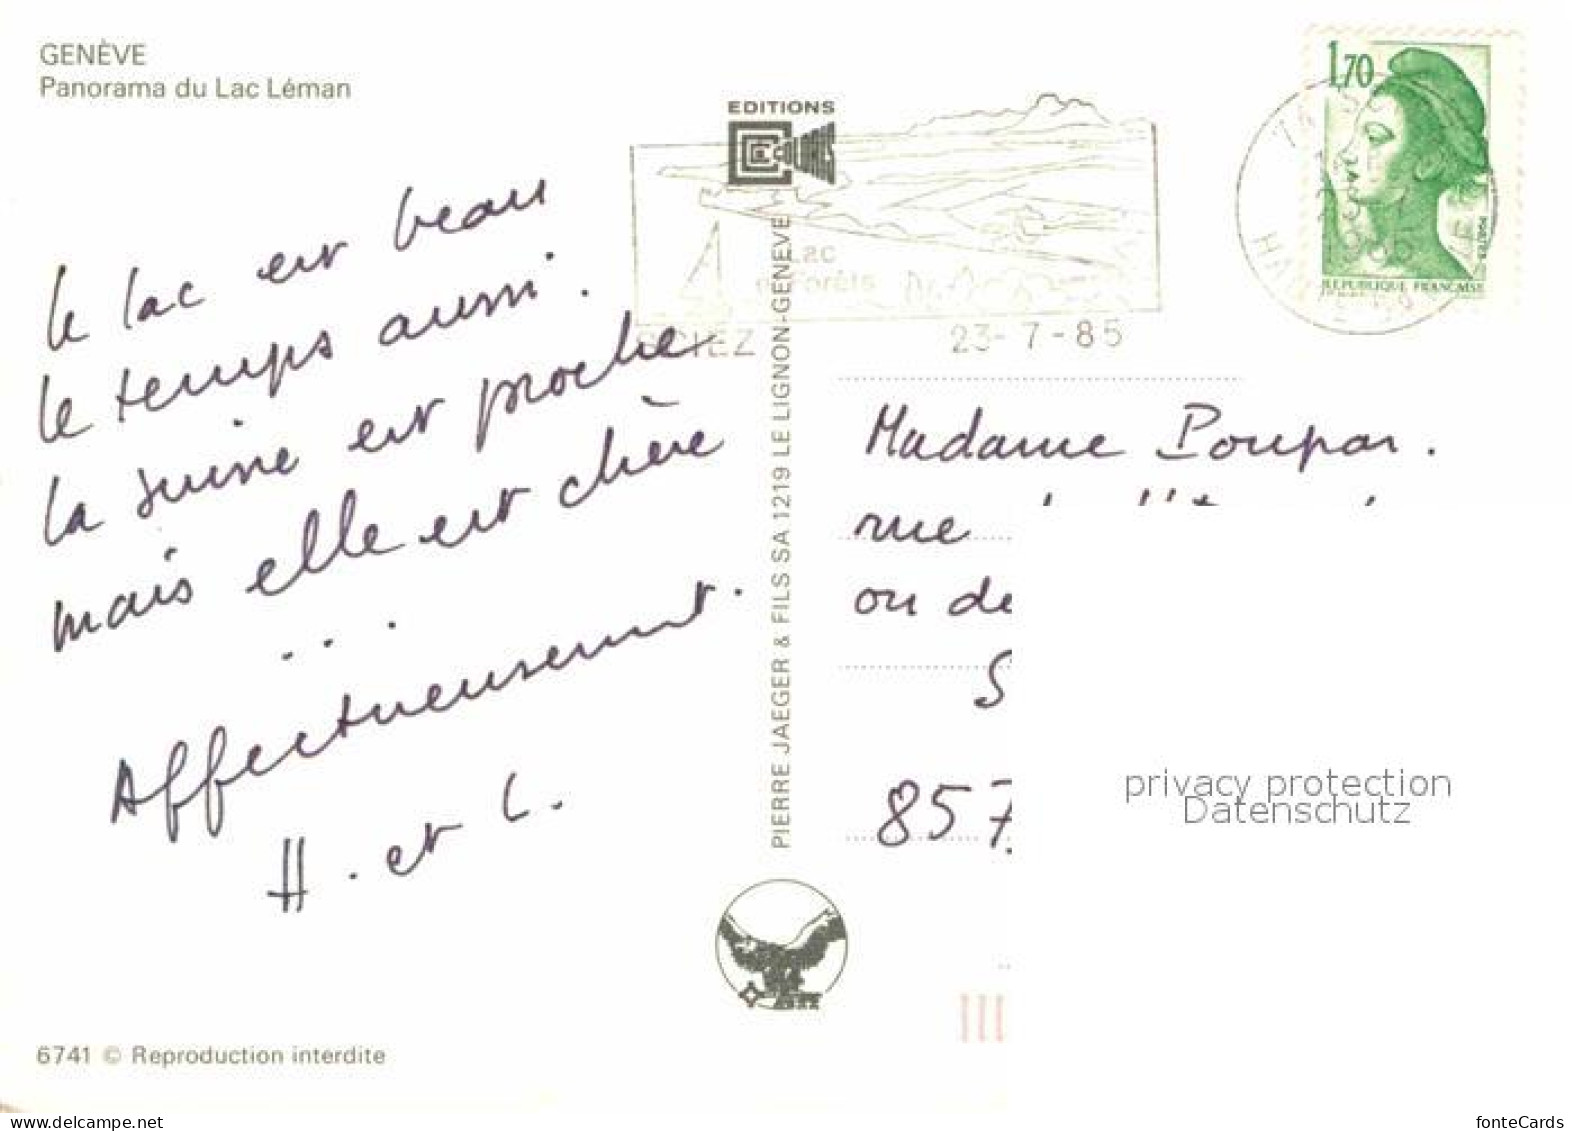 GENÈVE
Panorama du Lac Léman
EDITIONS
1,70
REPUBLIQUE FRANÇAISE
Lac
Forêts
23-7-85
le lac est beau
le temps aussi.
la suisse est proche
mais elle est chère
...
Affectueusement.
H. et L.
PIERRE JAEGER & FILS SA 1219 LE LIGNON-GENÈVE
Madame Poupar.
rue
ou de
S
857
privacy protection
Datenschutz
6741 © Reproduction interdite
delcampe.net
fonteCards